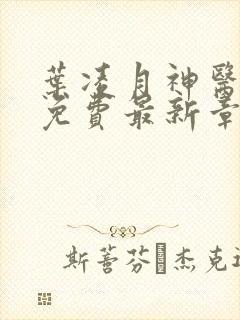 葉凌月神醫
免費最新章
斯蒂芬·杰克遜